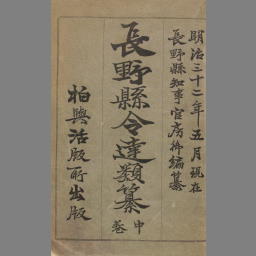 明治三十二年五月現在
長野縣知事官房御編纂
長野縣令達類纂
中巻
柏與活版所出版